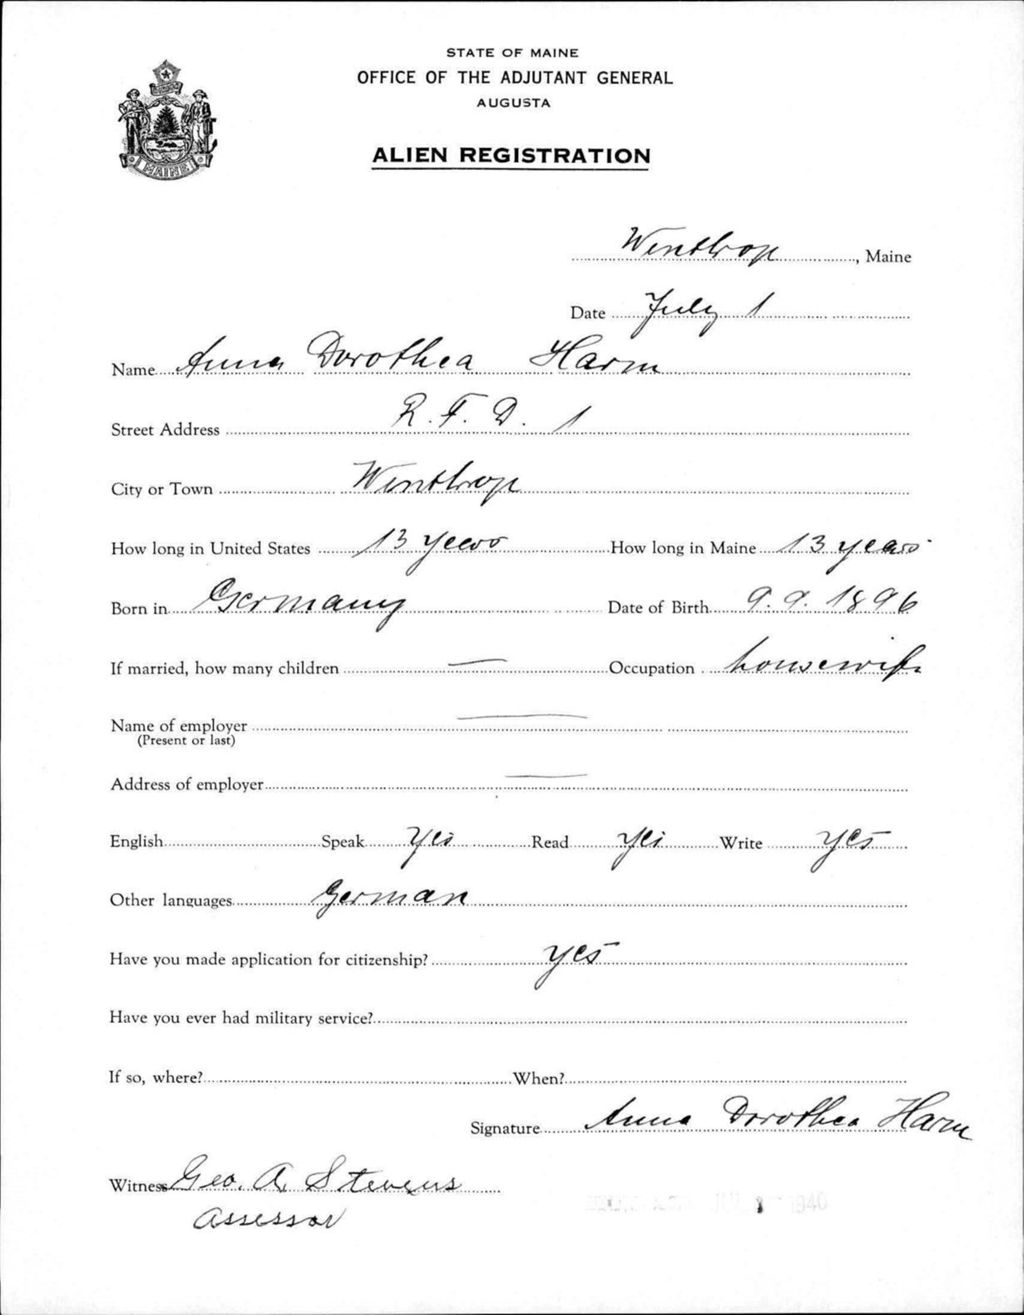 STATE OF MAINE
OFFICE OF THE ADJUTANT GENERAL
AUGUSTA
ALIEN REGISTRATION
MAINE
Winthrop, Maine
Date July 1
Name Anna Dorothea Harm
Street Address R.F.D. 1
City or Town Winthrop
How long in United States 13 years How long in Maine 13 years
Born in Germany Date of Birth 9.9.1896
If married, how many children — Occupation housewife
Name of employer —
(Present or last)
Address of employer —
English Speak Yes Read Yes Write Yes
Other languages German
Have you made application for citizenship? yes
Have you ever had military service?
If so, where? When?
Signature Anna Dorothea Harm
Witness Geo. A. Stevens
Assessor
1940